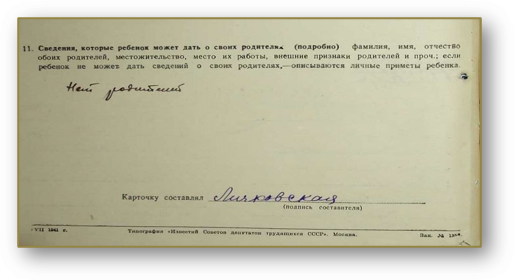 11. Сведения, которые ребенок может дать о своих родителях (подробно) фамилия, имя, отчество
обоих родителей, местожительство, место их работы, внешние признаки родителей и проч.; если
ребенок не может дать сведений о своих родителях,—описываются личные приметы ребенка.
Нет родителей
Карточку составлял Личковская
(подпись составителя)
VII 1941 г. Типография «Известий Советов депутатов трудящихся СССР», Москва. Зак. №